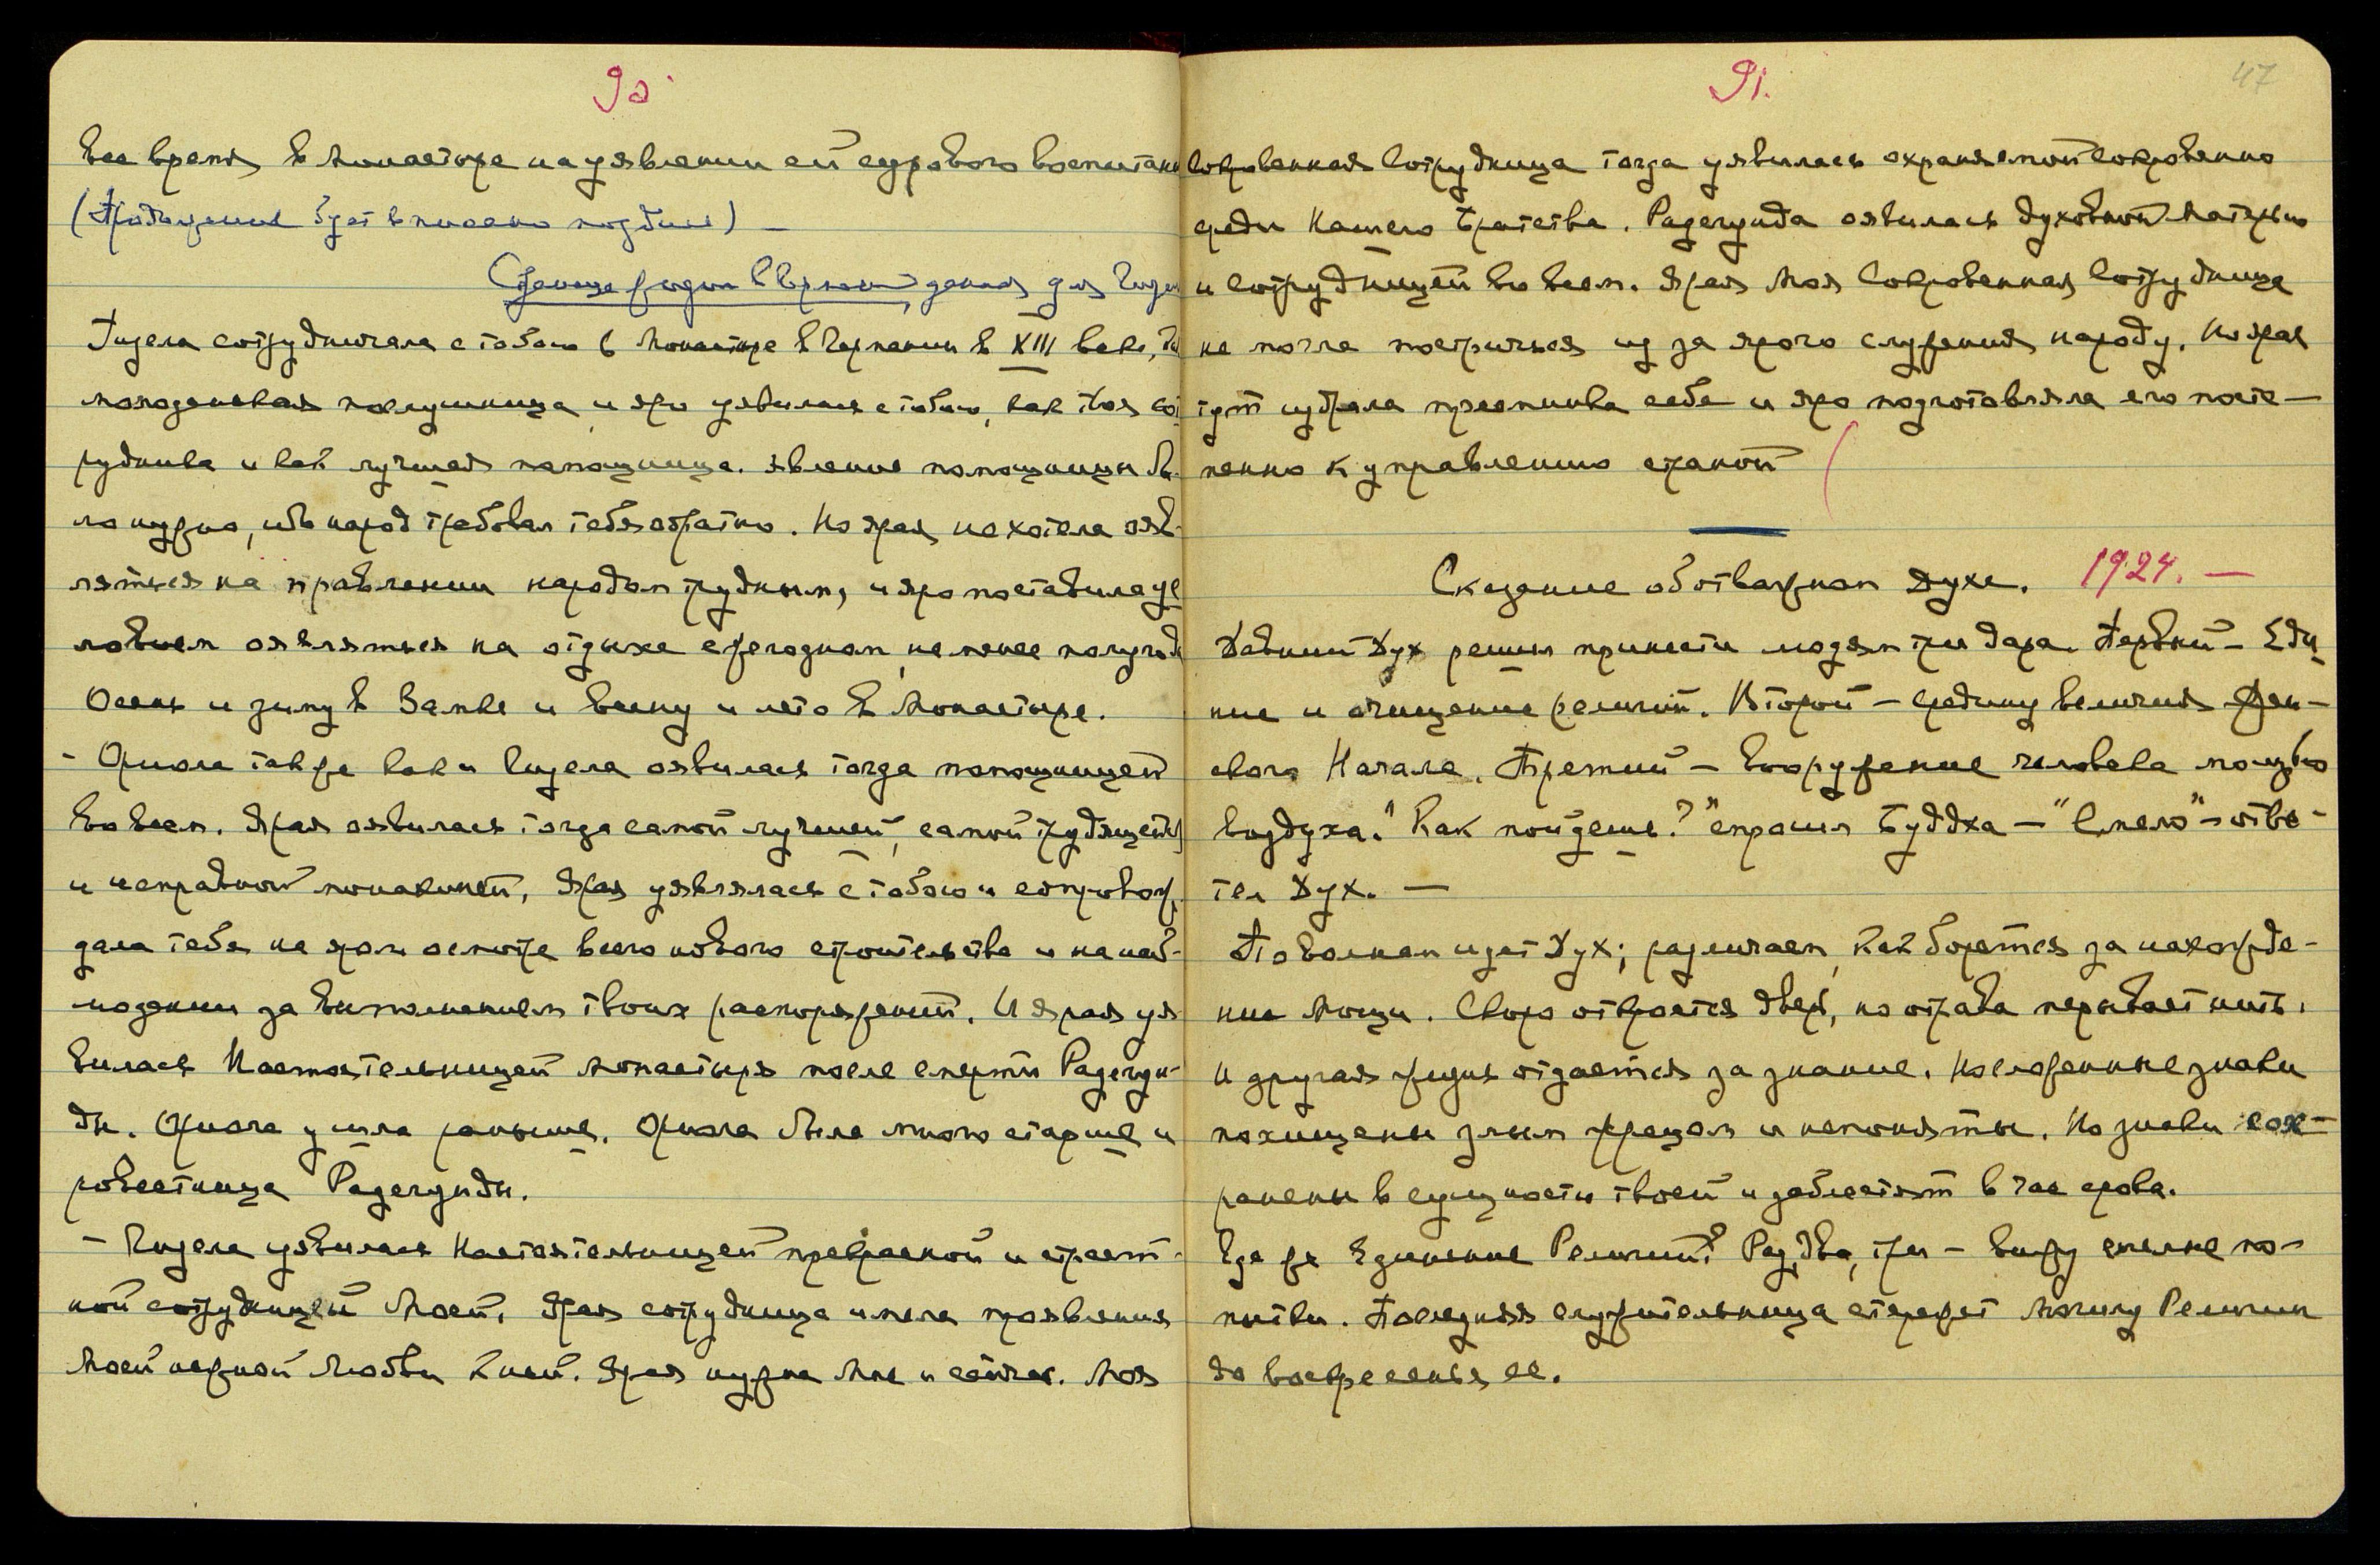 90
все время в Монастыре на уявлении ей сурового воспитани
(Продолжение будет вписано позднее) —
Страница жизни в Германии, данная для Гизел
Гизела сотрудничала с тобою в Монастыре в Германии в XIII веке,
молоденькая послушница и яро уявилась с тобою, как твоя сот
рудница и как лучшая помощница. Явление помощницы бы-
ло нужно, ибо народ требовал тебя обратно. Но ярая не хотела ояв-
ляться на правлении народом трудным, и яро поставила ус
ловием оявляться на отдыхе ежегодном, не менее полугода
Осень и зиму в Замке и весну и лето в Монастыре.
- Ориола так же как и Гизела оявилась тогда помощницей
во всем. Ярая оявилась тогда самой лучшей, самой трудящейся
и исправной монахиней. Ярая уявлялась с тобою и сопровож-
дала тебя на яром осмотре всего нового строительства и на наб-
людении за выполнением твоих распоряжений. И ярая уя
вилась Настоятельницей Монастыря после смерти Радегун-
ды. Ориола ушла раньше. Ориола была много старше и
ровестница Радегунды.
- Гизела уявилась Настоятельницей прекрасной и страст-
ной сотрудницей Моей. Ярая сотрудница имела проявления
Моей нежной Любви к ней. Ярая нужна Мне и сейчас. Моя
91.
47
Сокровенная Сотрудница тогда уявилась охраняемой сокровенно
среди Нашего Братства. Радегунда оявилась духовной Матерью
и Сотрудницей во всем. Ярая Моя Сокровенная Сотрудница
не могла постричься из за ярого служения народу. Но ярая
тут избрала преемника себе и яро подготовляла его посте-
пенно к управлению страной
Сказание об отважном Духе. 1924. —
Давний Дух решил принести людям три дара. Первый - Еди
ние и очищение религий. Второй - средину величия Жен-
ского Начала. Третий - вооружение человека мощью
воздуха. "Как пойдешь?" спросил Будда - "Смело" - отве-
тил Дух. —
По волнам идет Дух; различаем, как борется за нахожде-
ние Мощи. Скоро откроется дверь, но отрава перерывает нить.
И другая жизнь отдается за знание. Но сложенные знаки
похищены злым жрецом и непоняты. Но знаки сох-
ранены в сущности твоей и заблестят в час срока.
Где же Единение Религий? Раз, два, три - вижу смелые по-
пытки. Последняя служительница стережет Могилу Религии
до воскресенья ее.